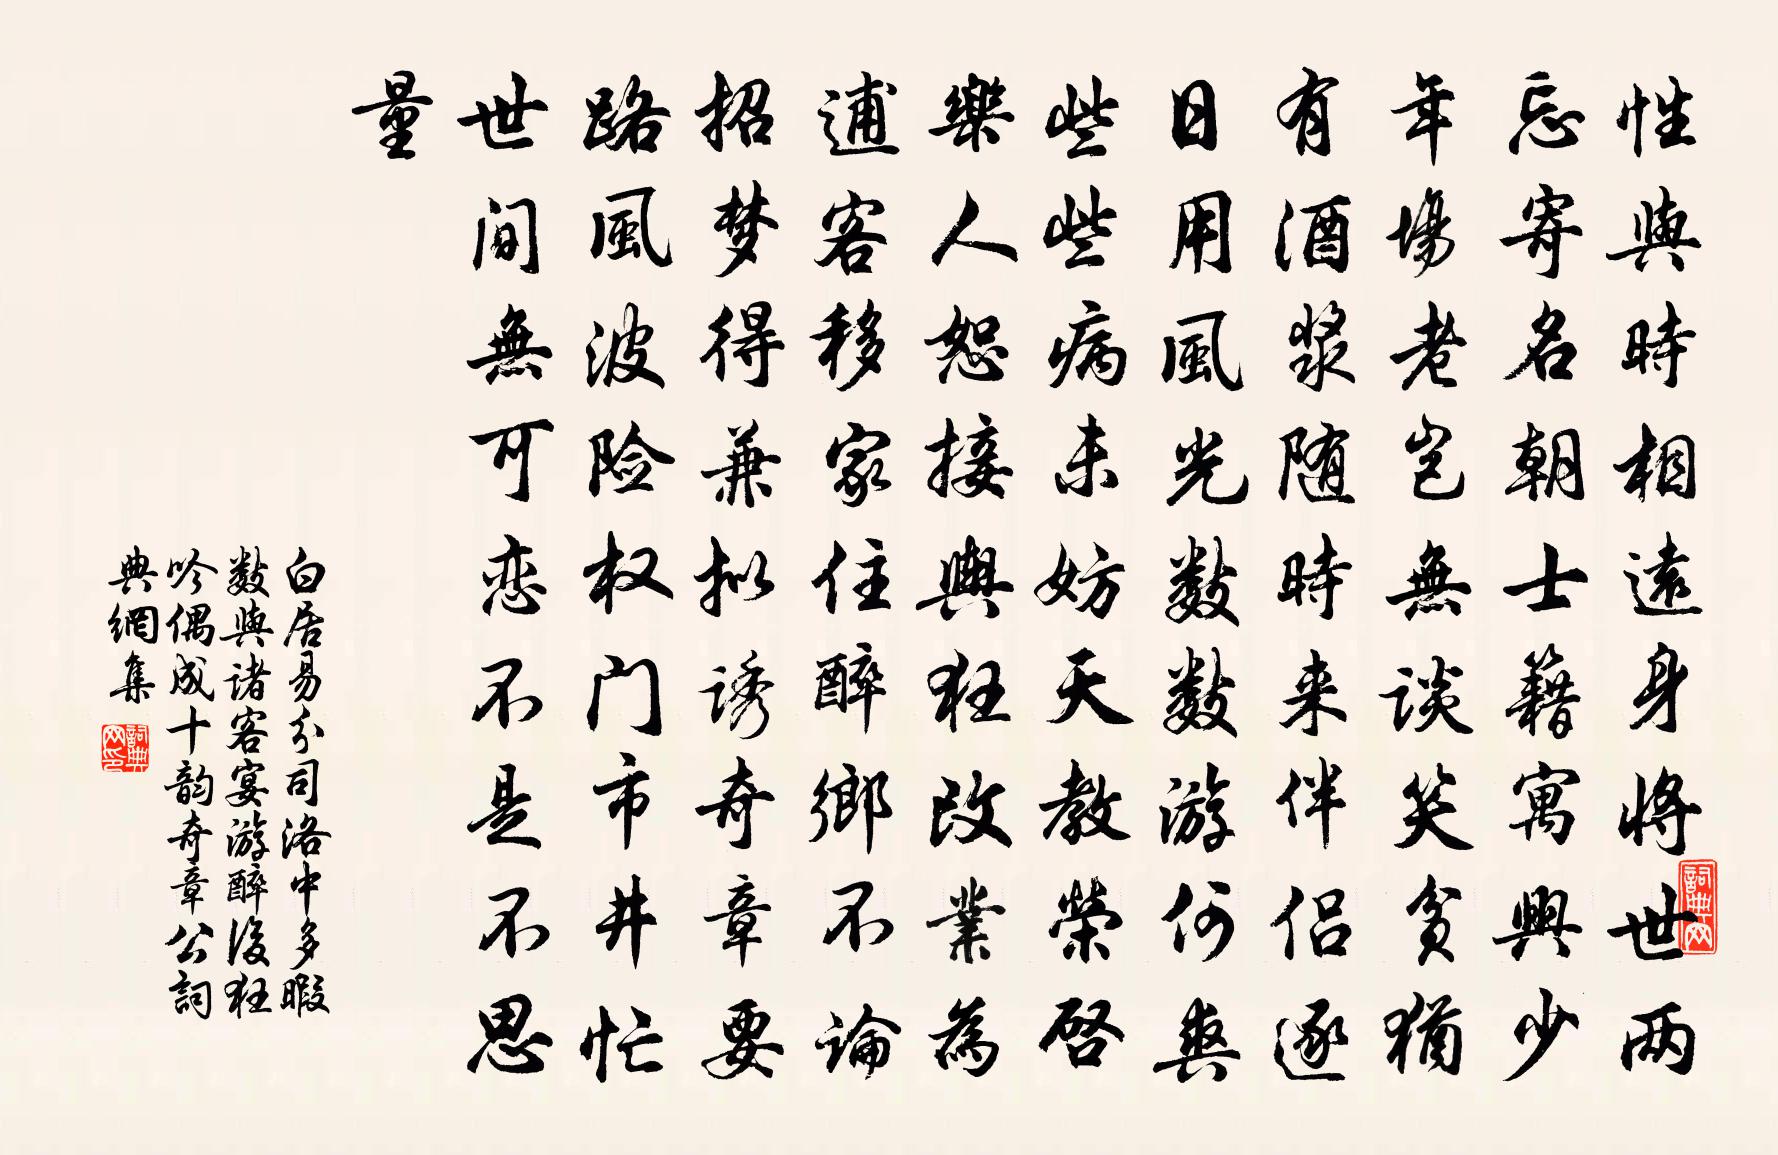 性與時相遠身將世两
忘寄名朝士籍寓興少
年場老豈無談笑貧猶
有酒漿随時来伴侣逐
日用風光數數游何爽
些些病未妨天教榮啓
樂人恕接輿狂改業為
逋客移家住醉鄉不論
招梦得兼拟诱奇章要
路風波险权门市井忙
世间無可恋不是不思
量
白居易分司洛中多暇
數與诸客宴游醉後狂
吟偶成十韵奇章公詞
典網集
詞典网
詞典网印